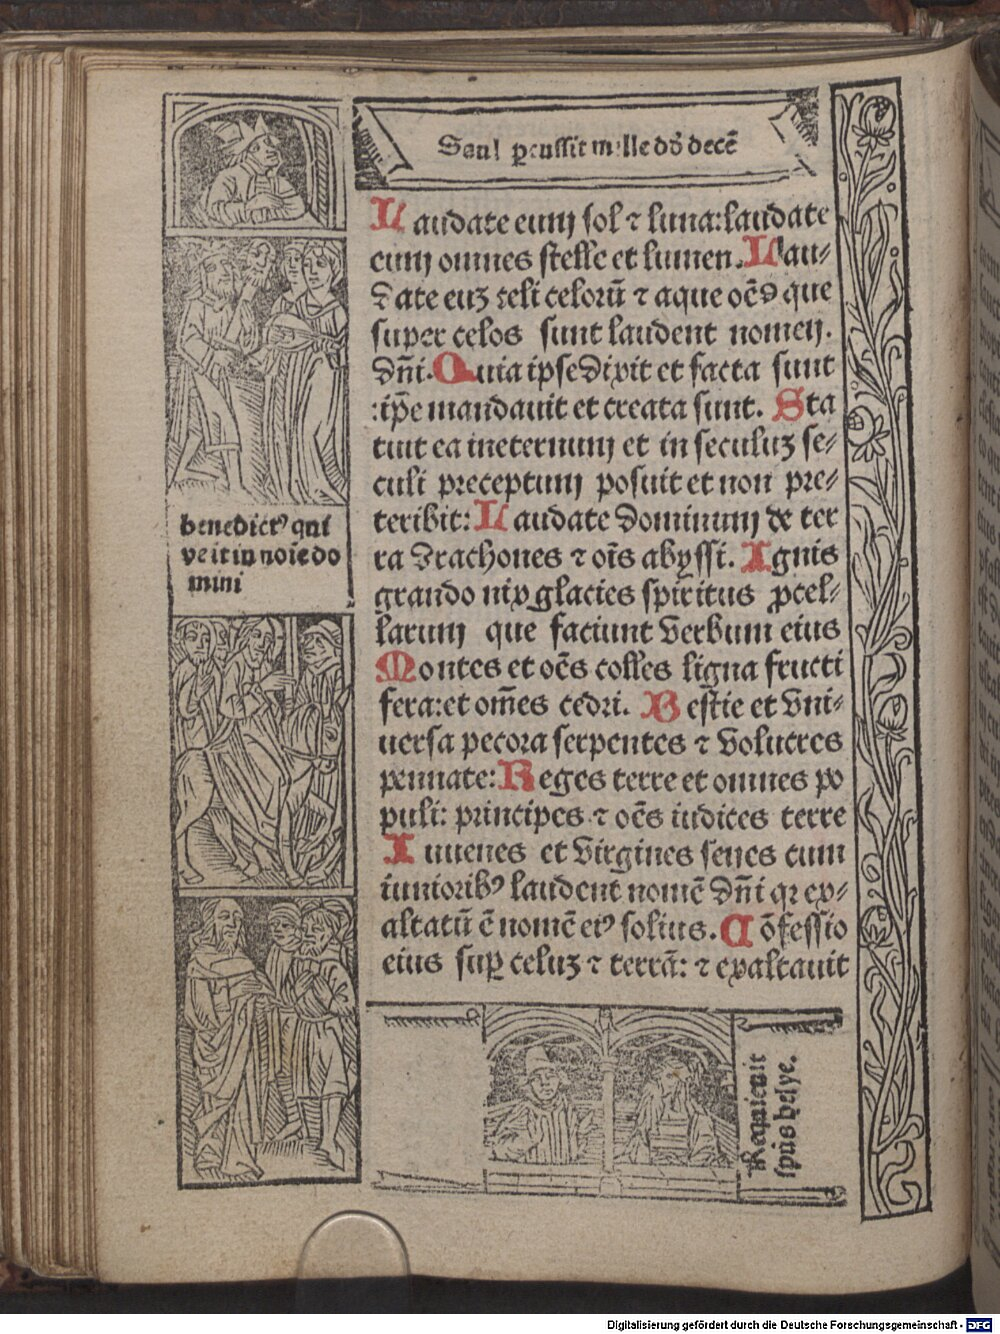 Saul ꝑcussit mille dd̄ decē
Laudate eum sol ⁊ luna: laudate
eum omnes stelle et lumen. Lau-
date euꝫ celi celorū ⁊ aque oēs que
super celos sunt laudent nomen.
dn̄i. Quia ipse dixit et facta sunt
: ip̄e mandauit et creata sunt. Sta
tuit ea ineternum et in seculuꝫ se-
culi preceptum posuit et non pre-
teribit: Laudate dominum de ter
ra drachones ⁊ oīs abyssi. Ignis
grando nix glacies spiritus ꝓcel-
larum que faciunt verbum eius
Montes et oēs colles ligna fructi
fera: et om̄es cedri. Bestie et vni-
uersa pecora serpentes ⁊ volucres
pennate: Reges terre et omnes po
puli: principes ⁊ oēs iudices terre
Iuuenes et virgines senes cum
iunioribꝰ laudent nomē dn̄i qꝛ ex-
altatū ē nomē eiꝰ solius. Cōfessio
eius suꝑ celuꝫ ⁊ terrā: ⁊ exaltauit
benedictꝰ qui
veit in noīe do
mini
Requieuit
spūs helye.
Digitalisierung gefördert durch die Deutsche Forschungsgemeinschaft - DFG